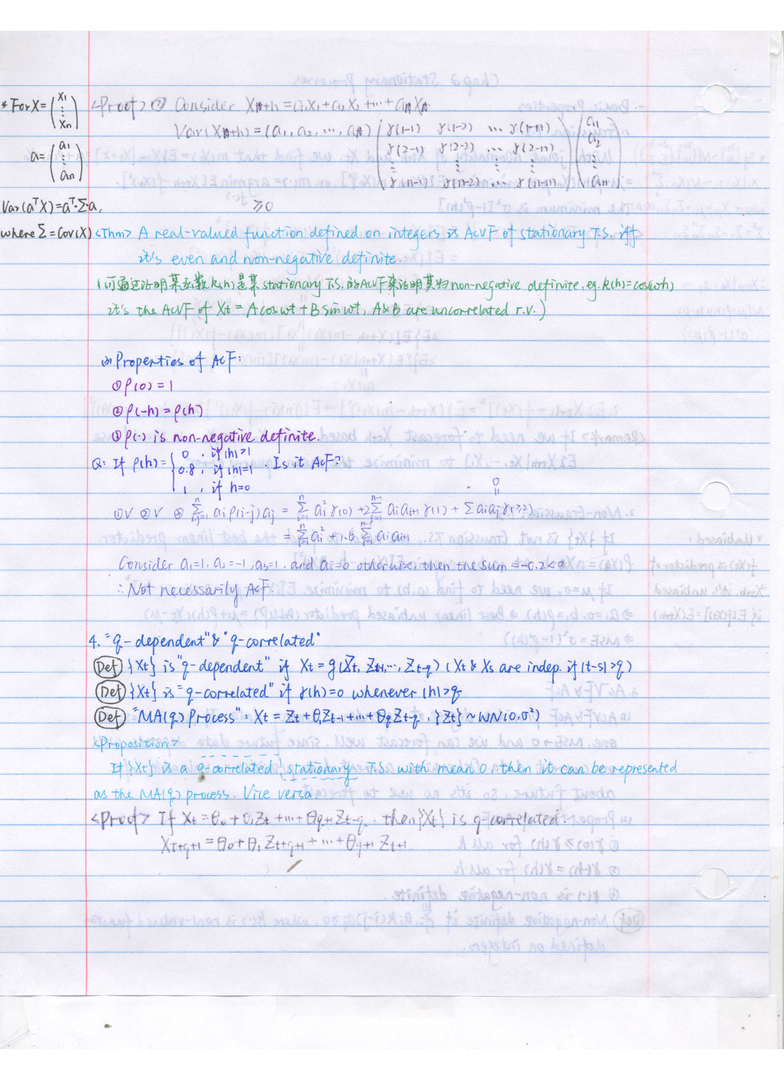 * For X = (x1 ⋮ xn)
a = (a1 ⋮ an)
Var(aᵀX) = aᵀ·Σ·a,
where Σ = Cov(X)
<Proof> ③ Consider Xn+h = a1X1 + a2X2 + ... + anXn
Var(Xn+h) = (a1, a2, ..., an) (γ(1-1) γ(1-2) ... γ(1-n) (a1
γ(2-1) γ(2-2) ... γ(2-n) a2
⋮ ⋮ ⋮ ⋮
γ(n-1) γ(n-2) ... γ(n-n)) an)
≥0
<Thm> A real-valued function defined on integers is AcVF of stationary T.S. iff
it's even and non-negative definite.
(可通过证明某函数k(h)是某stationary T.S.的AcVF来证明其为non-negative definite, eg. k(h)=cos(wh)
it's the AcVF of Xt = A cos wt + B sin wt, A & B are uncorrelated r.v.)
(3) Properties of AcF:
① ρ(0) = 1
② ρ(-h) = ρ(h)
③ ρ(·) is non-negative definite.
Q: If ρ(h) = { 0, if |h|>1
0.8, if |h|=1 . Is it AcF?
1, if h=0
0
①√ ②√ ③ Σ ai ρ(i-j) aj = Σ ai² γ(0) + 2Σ ai ai+1 γ(1) + Σ ai aj γ(≥2)
= Σ ai² + 1.6 Σ ai ai+1
Consider a1=1, a2=-1, a3=1, and ai=0 otherwise, then the sum = -0.2<0
∴ Not necessarily AcF
4. "q-dependent" & "q-correlated"
(Def) {Xt} is "q-dependent" if Xt = g(Zt, Zt-1, ..., Zt-q) (Xt & Xs are indep. if |t-s|>q)
(Def) {Xt} is "q-correlated" if γ(h)=0 whenever |h|>q
(Def) "MA(q) process": Xt = Zt + θ1Zt-1 + ... + θqZt-q, {Zt} ~ WN(0,σ²)
<Proposition>
If {Xt} is a q-correlated stationary T.S. with mean 0 then it can be represented
as the MA(q) process. Vice versa
<Proof> If Xt = θ0 + θ1Zt + ... + θq+1Zt-q, then {Xt} is q-correlated
Xt+q+1 = θ0 + θ1Zt+q+1 + ... + θq+1Zt+1